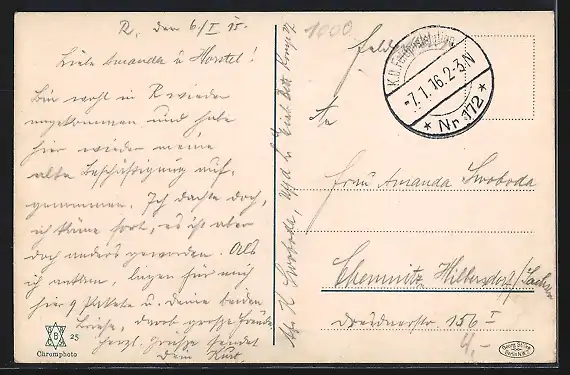 R, den 6./I 15.
Liebe Amanda u Horstel!
Bin wohl in R wieder
angekommen und habe
hier wieder meine
alte Beschäftigung auf-
genommen. Ich dachte doch,
ich käme fort, es ist aber
doch anders geworden. Als
ich ankam, liegen für mich
hier 9 Pakete u. deine beiden
Briefe, darob große Freude
herzl. Grüße sendet
dem Kurt.
25
Chromphoto
Abs. K Swoboda,
1000
Feld
K.D. Feldpoststation
-7.1.16.2-3.N
* Nr. 172 *
An
Frau Amanda Swoboda
Chemnitz, Hilbersdorf/Sachsen
Dresdnerstr 156 I
4,-
Georg Stilke
Berlin N.W.7.